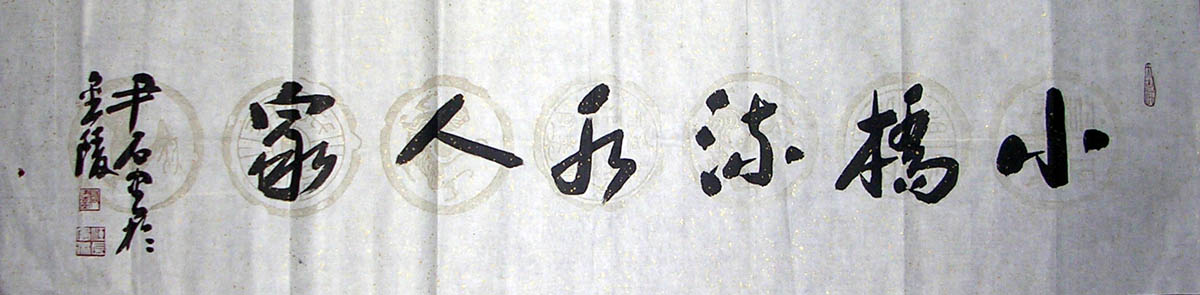 小橋流水人家
尹石書於
金陵